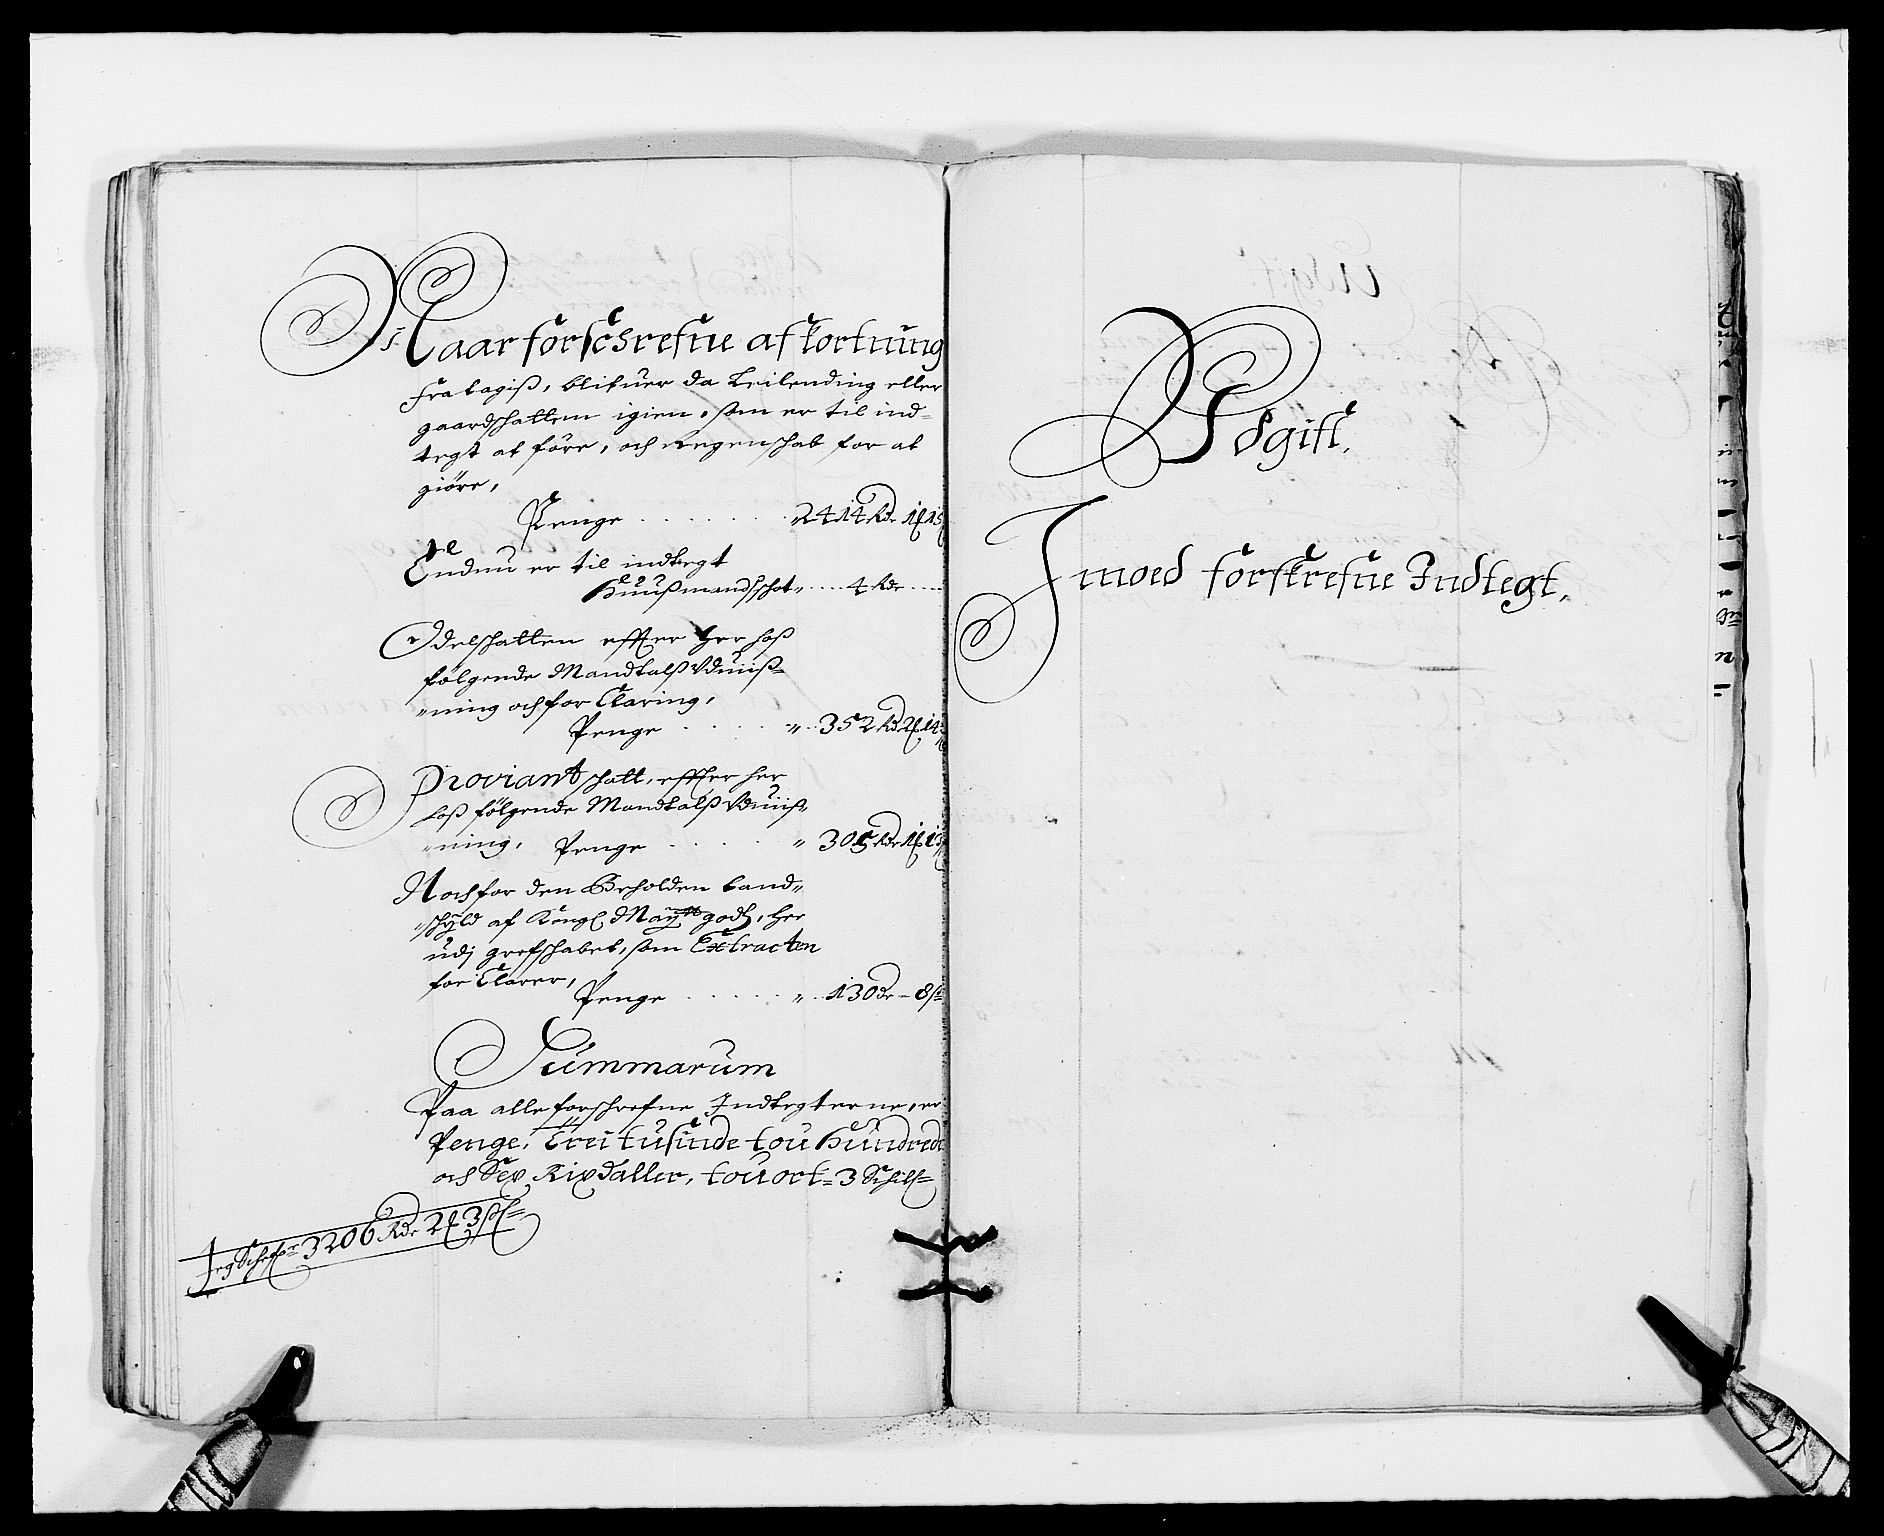 Naar forschrefne afkortning
fratagiß, blifuer da Leilending eller
gaardschatten igien, som er til ind-
tegt at före, och Regenschab for at
giöre,
Penge ....... 2414 Rdr 1 ſ 15
Endnu er til indtegt
Huußmandsschat .... 4 Rdr ....
Odelschatten effter her hoß
følgende Mandtalß Vduiiß-
ning och for Claring,
Penge ..... 352 Rdr 2 ſ 14
Proviantschatt, effter her
hoß følgende Mandtalß Vduiiß-
ning, Penge ..... 305 Rdr 1 ſ 13
Noch for den Beholden Land-
schyld af Kongl May:tts godß, her
udj grefschabet, som Extracten
for Clarer,
Penge ..... 130 dr - 8 ſs
Summarum
Paa alle forschrefne Indtegterne, er
Penge, Trei tusinde tou Hundrede
och Sex Rixdaller, tou ort- 3 Schil-
3206 Rdr 2 ſ 3 ß
Vdgift,
Imoed forskrefne Indtegt,